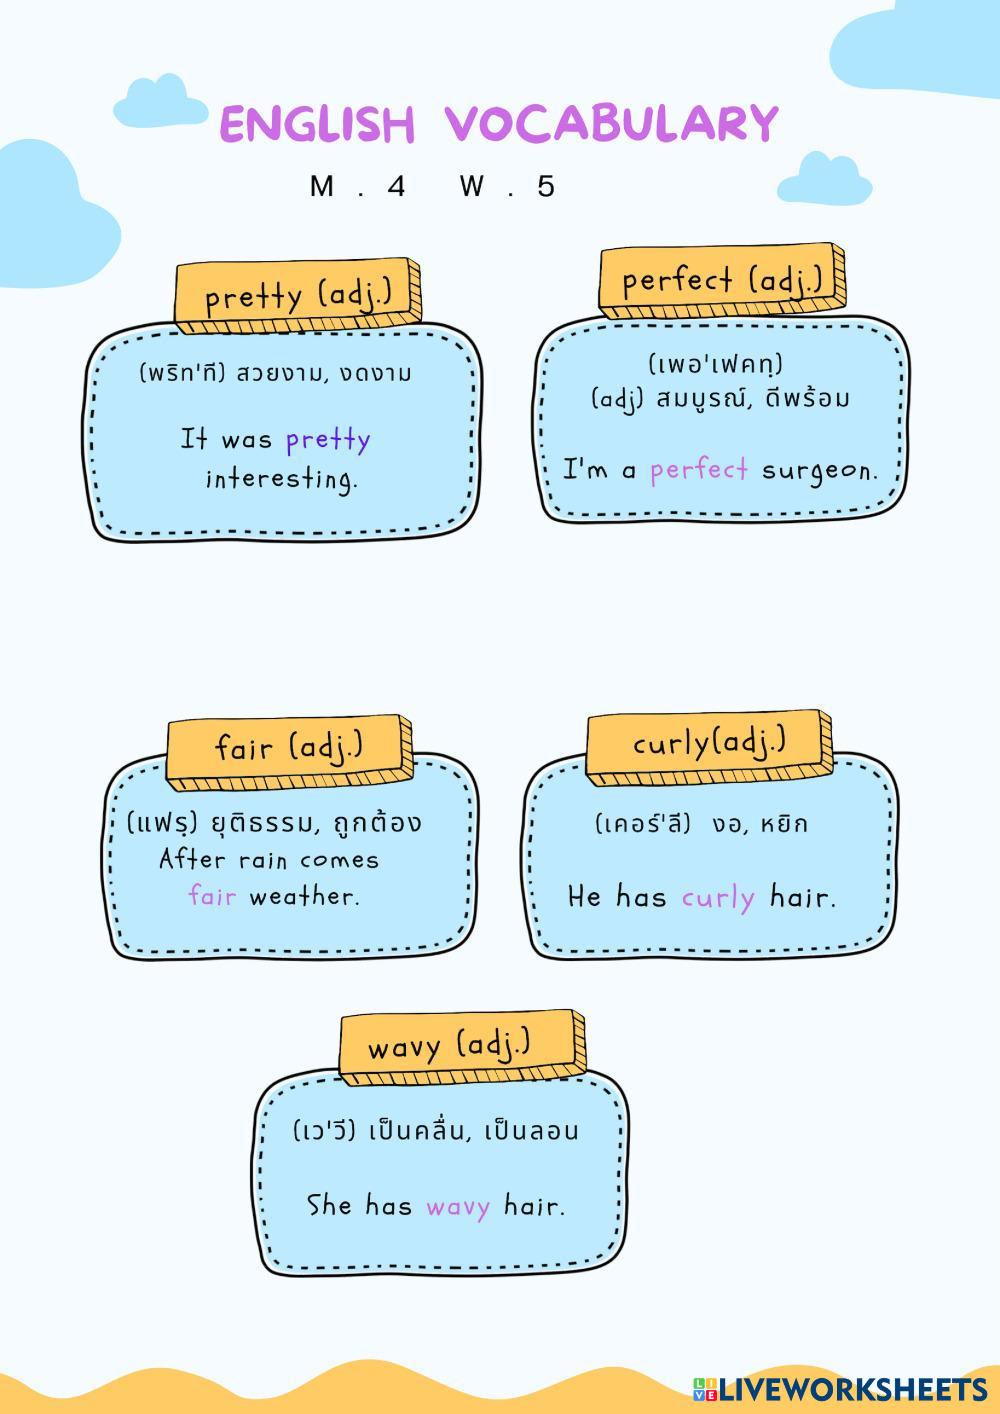 ENGLISH VOCABULARY
M.4 W.5
pretty (adj.)
(พริท'ที) สวยงาม, งดงาม
It was pretty
interesting.
perfect (adj.)
(เพอ'เฟคทฺ)
(adj) สมบูรณ์, ดีพร้อม
I'm a perfect surgeon.
fair (adj.)
(แฟรฺ) ยุติธรรม, ถูกต้อง
After rain comes
fair weather.
curly(adj.)
(เคอร์'ลี) งอ, หยิก
He has curly hair.
wavy (adj.)
(เว'วี) เป็นคลื่น, เป็นลอน
She has wavy hair.
LIVE LIVEWORKSHEETS